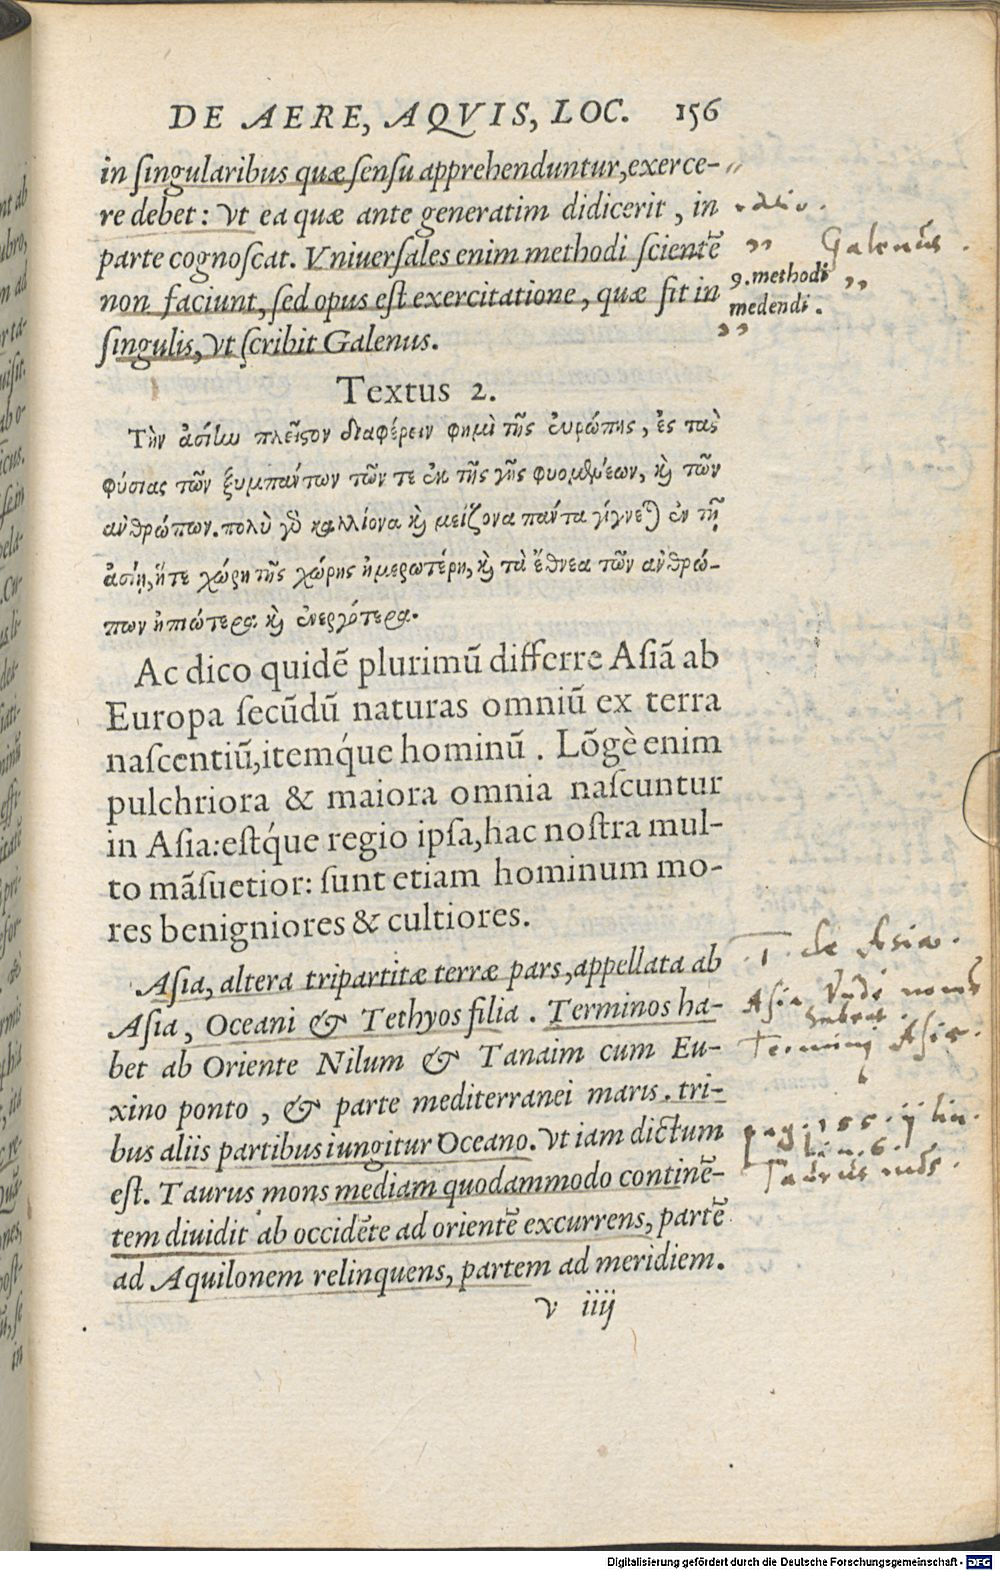 DE AERE, AQVIS, LOC. 156
in ſingularibus quæ ſenſu apprehenduntur, exerce-
re debet: vt ea quæ ante generatim didicerit, in
parte cognoſcat. Vniuerſales enim methodi ſcientẽ
non faciunt, ſed opus eſt exercitatione, quæ fit in
ſingulis, vt ſcribit Galenus.
Galenus.
9. methodi
medendi.
Textus 2.
Τὴν ἀσίην πλεῖστον διαφέρειν φημὶ τῆς εὐρώπης, ἐς τὰς
φύσιας τῶν ξυμπάντων τῶν τε ἐκ τῆς γῆς φυομένων, καὶ τῶν
ἀνθρώπων. πολὺ γὸ καλλίονα καὶ μείζονα πάντα γίγνεται ἐν τῇ
ἀσίῃ, ἥτε χώρη τῆς χώρης ἡμερωτέρη, καὶ τὰ ἔθνεα τῶν ἀνθρώ-
πων ἠπιώτερα καὶ ἐνεργότερα.
Ac dico quidẽ plurimũ differre Aſiã ab
Europa ſecũdũ naturas omniũ ex terra
naſcentiũ, itemq́ue hominũ. Lõgè enim
pulchriora & maiora omnia naſcuntur
in Aſia: eſtq́ue regio ipſa, hac noſtra mul-
to mãſuetior: ſunt etiam hominum mo-
res benigniores & cultiores.
Aſia, altera tripartitæ terræ pars, appellata ab
Aſia, Oceani & Tethyos filia. Terminos ha-
bet ab Oriente Nilum & Tanaim cum Eu-
xino ponto, & parte mediterranei maris. tri-
bus aliis partibus iungitur Oceano. Vt iam dictum
eſt. Taurus mons mediam quodammodo continẽ-
tem diuidit ab occidẽte ad orientẽ excurrens, partẽ
ad Aquilonem relinquens, partem ad meridiem.
v iiij
1. de Asia.
Asia Vnde nomẽ
habeat.
Termini Asiæ.
pag. 155. ij lin.
lin. 6.
Taurus mõs.
Digitalisierung gefördert durch die Deutsche Forschungsgemeinschaft - DFG